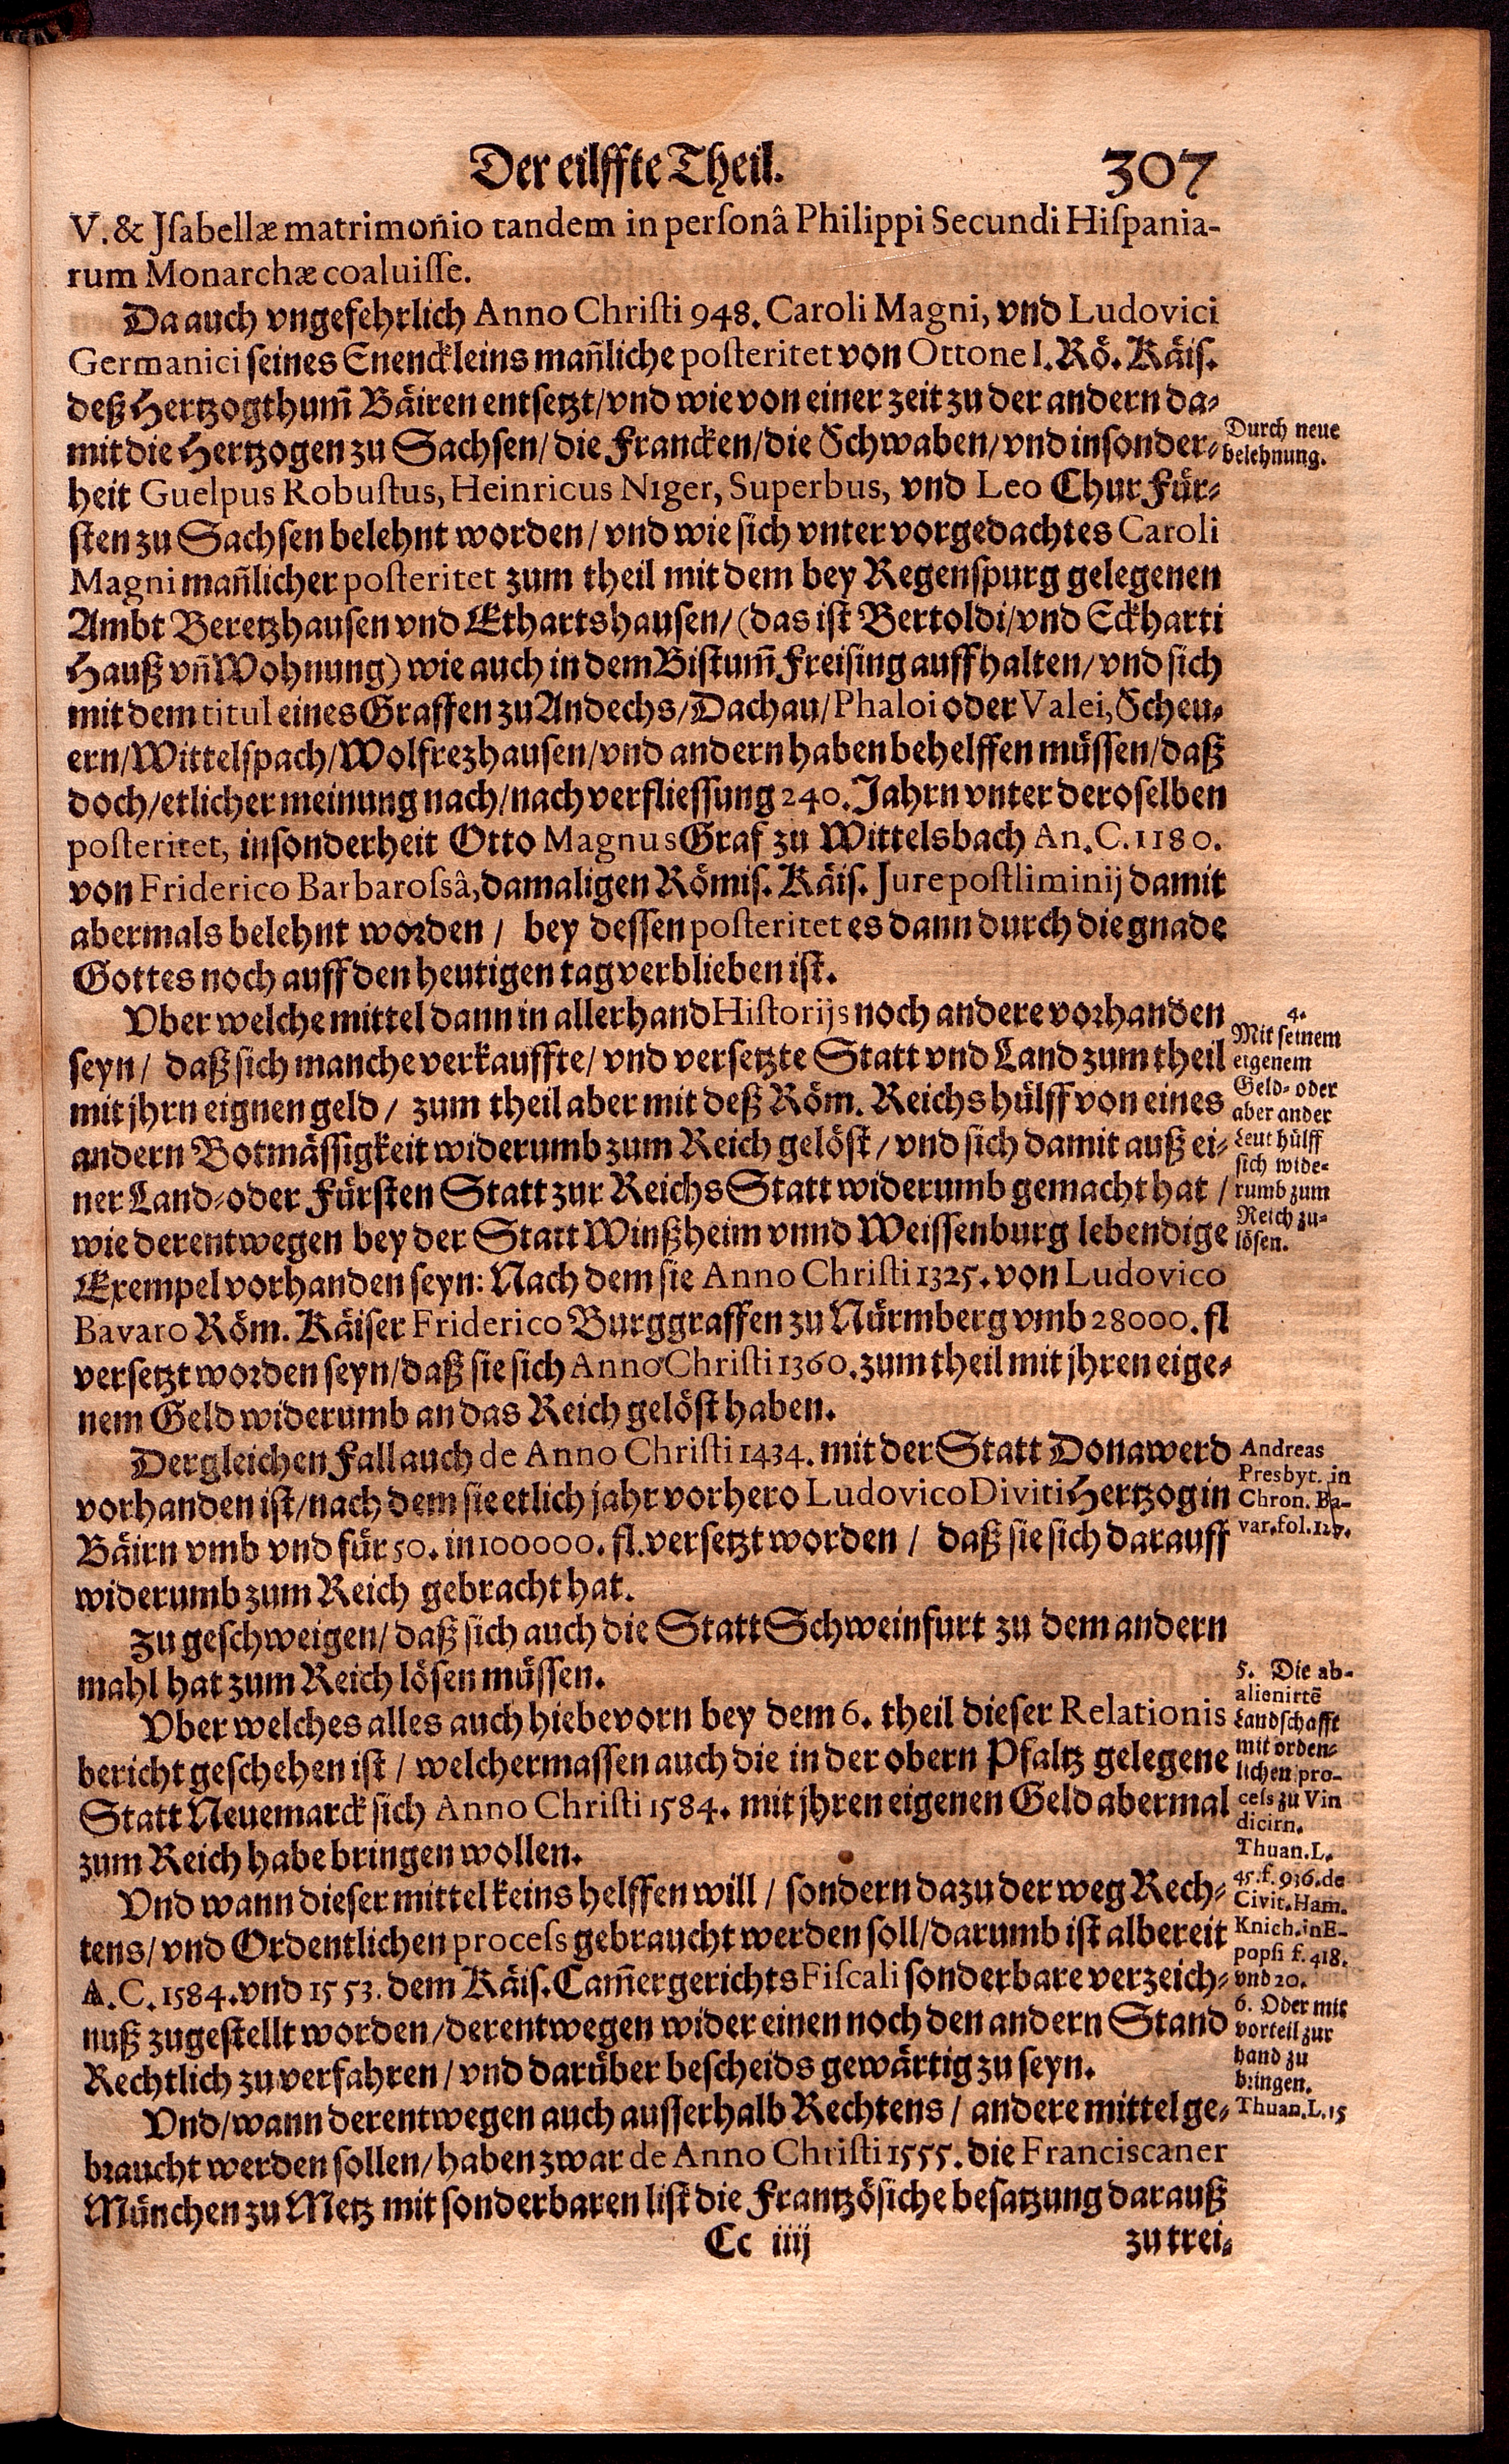 Der eilffte Theil. 307
V. & Jsabellæ matrimonio tandem in personâ Philippi Secundi Hispania-
rum Monarchæ coaluisse.
Da auch vngefehrlich Anno Christi 948. Caroli Magni, vnd Ludovici
Germanici seines Enenckleins mañliche posteritet von Ottone I. Rö. Käis.
deß Hertzogthum̃ Bäiren entsetzt/vnd wie von einer zeit zu der andern da-
mit die Hertzogen zu Sachsen/die Francken/die Schwaben/vnd insonder-
Durch neue
belehnung.
heit Guelpus Robustus, Heinricus Niger, Superbus, vnd Leo ChurFür-
sten zu Sachsen belehnt worden/vnd wie sich vnter vorgedachtes Caroli
Magni mañlicher posteritet zum theil mit dem bey Regenspurg gelegenen
Ambt Beretzhausen vnd Ethartshausen/(das ist Bertoldi/vnd Eckharti
Hauß vñ Wohnung) wie auch in dem Bistum̃ Freising auffhalten/vnd sich
mit dem titul eines Graffen zu Andechs/Dachau/Phaloi oder Valei, Scheu-
ern/Wittelspach/Wolfrezhausen/vnd andern haben behelffen müssen/daß
doch/etlicher meinung nach/nach verfliessung 240. Jahrn vnter deroselben
posteritet, insonderheit Otto Magnus Graf zu Wittelsbach An. C. 1180.
von Friderico Barbarossâ, damaligen Römis. Käis. Jure postliminij damit
abermals belehnt worden / bey dessen posteritet es dann durch die gnade
Gottes noch auff den heutigen tag verblieben ist.
Vber welche mittel dann in allerhand Historijs noch andere vorhanden
seyn / daß sich manche verkauffte/ vnd versetzte Statt vnd Land zum theil
mit jhrn eignen geld / zum theil aber mit deß Röm. Reichs hülff von eines
andern Botmässigkeit widerumb zum Reich gelöst/vnd sich damit auß ei-
ner Land-oder Fürsten Statt zur Reichs Statt widerumb gemacht hat /
wie derentwegen bey der Statt Winßheim vnnd Weissenburg lebendige
4.
Mit seinem
eigenem
Geld- oder
aber ander
Leut hülff
sich wide-
rumb zum
Reich zu-
lösen.
Exempel vorhanden seyn: Nach dem sie Anno Christi 1325. von Ludovico
Bavaro Röm. Käiser Friderico Burggraffen zu Nürmberg vmb 28000. fl
versetzt worden seyn/daß sie sich Anno Christi 1360. zum theil mit jhren eige-
nem Geld widerumb an das Reich gelöst haben.
Dergleichen Fall auch de Anno Christi 1434. mit der Statt Donawerd
vorhanden ist/nach dem sie etlich jahr vorhero Ludovico Diviti Hertzog in
Bäirn vmb vnd für 50. in 100000. fl. versetzt worden / daß sie sich darauff
Andreas
Presbyt. in
Chron. Ba-
var. fol.
widerumb zum Reich gebracht hat.
Zu geschweigen/daß sich auch die Statt Schweinfurt zu dem andern
mahl hat zum Reich lösen müssen.
Vber welches alles auch hiebevorn bey dem 6. theil dieser Relationis
bericht geschehen ist / welchermassen auch die in der obern Pfaltz gelegene
Statt Neuemarck sich Anno Christi 1584. mit jhren eigenen Geld abermal
zum Reich habe bringen wollen.
5. Die ab-
alienirtē
Landschafft
mit orden-
lichen pro-
cess zu Vin
dicirn.
Thuan. L.
45. f. 936. de
Civit. Ham̃.
Knich. in E-
popsi f. 418.
vnd 20.
Vnd wann dieser mittel keins helffen will / sondern dazu der weg Rech-
tens/ vnd Ordentlichen process gebraucht werden soll/darumb ist albereit
A. C. 1584. vnd 1553. dem Käis. Cam̃ergerichts Fiscali sonderbare verzeich-
nuß zugestellt worden/derentwegen wider einen noch den andern Stand
Rechtlich zu verfahren / vnd darüber bescheids gewärtig zu seyn.
6. Oder mit
vorteil zur
hand zu
bringen.
Thuan. L. 15
Vnd/wann derentwegen auch ausserhalb Rechtens / andere mittel ge-
braucht werden sollen/haben zwar de Anno Christi 1555. die Franciscaner
München zu Metz mit sonderbaren list die Frantzösiche besatzung darauß
Cc iiij zu trei-